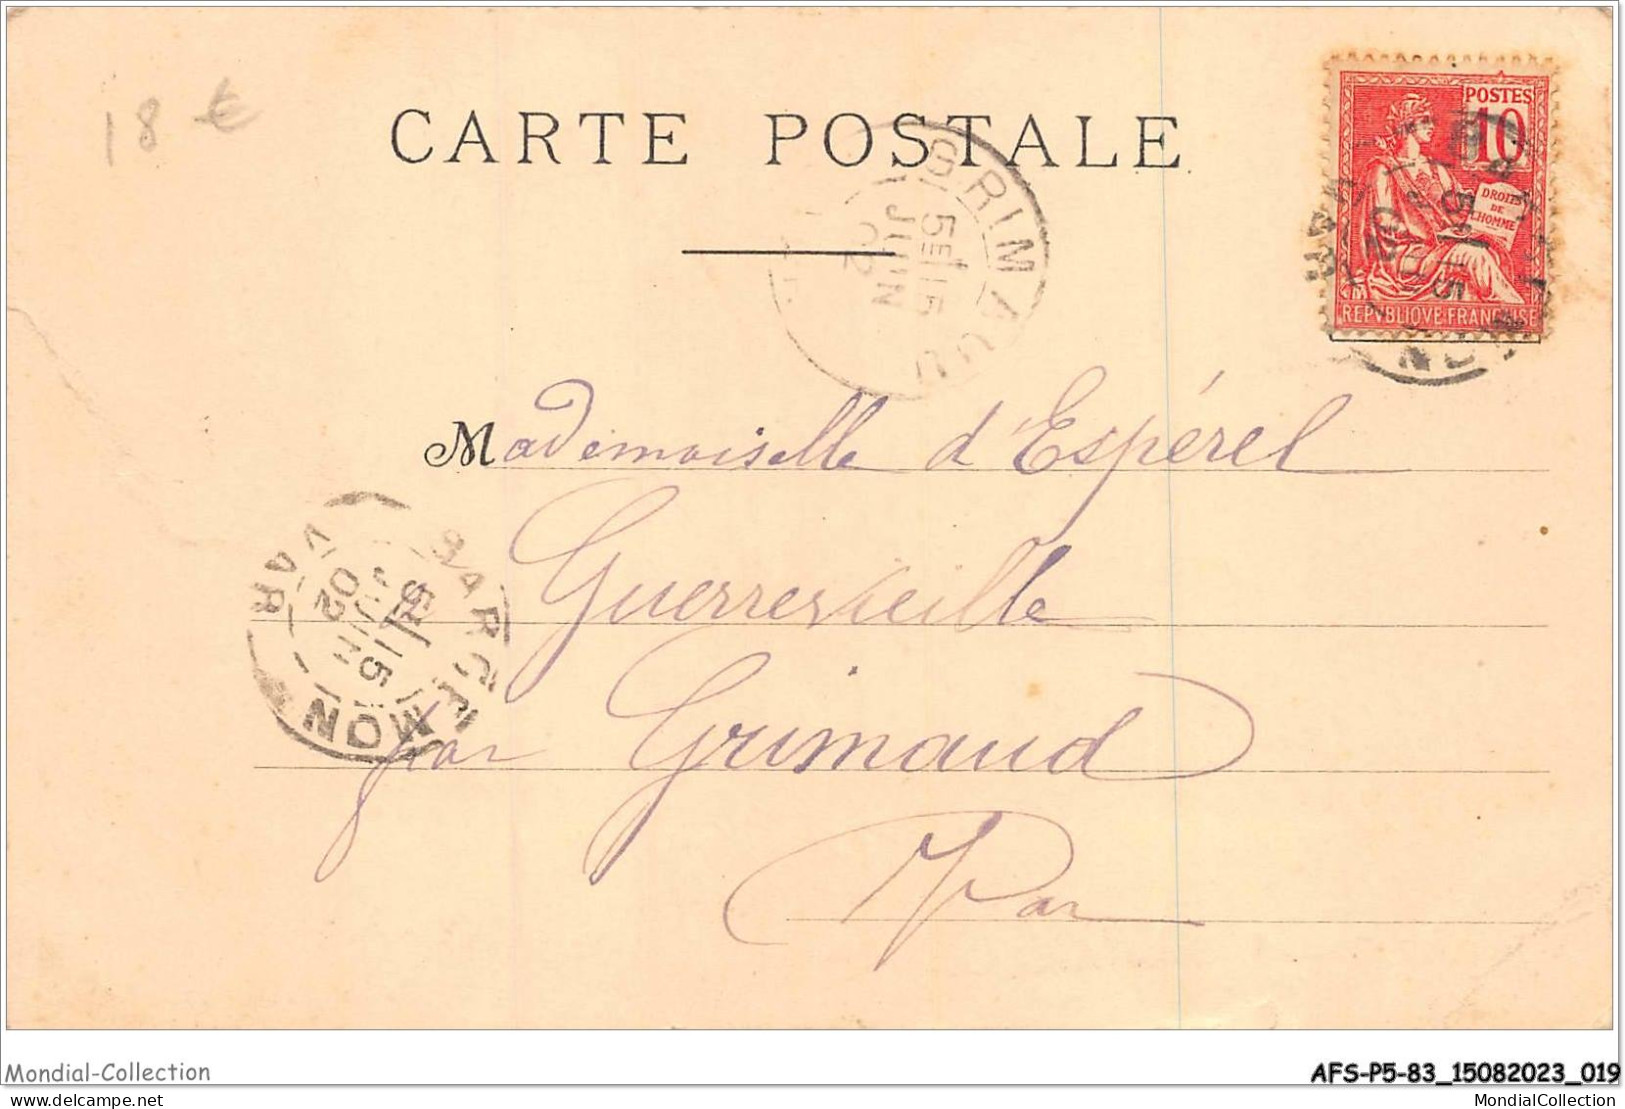 18 €
CARTE POSTALE
POSTES
10
DROITS
DE
L'HOMME
REPVBLIQVE FRANÇAISE
GRIMAUD
5E 15
JUIN
02
Mademoiselle d'Espérel
Guerrevieille
par Grimaud
Var
BARGEMON
VAR
5E 15
JUIN
02
Mondial-Collection
AFS-P5-83_15082023_019
delcampe.net
MondialCollection